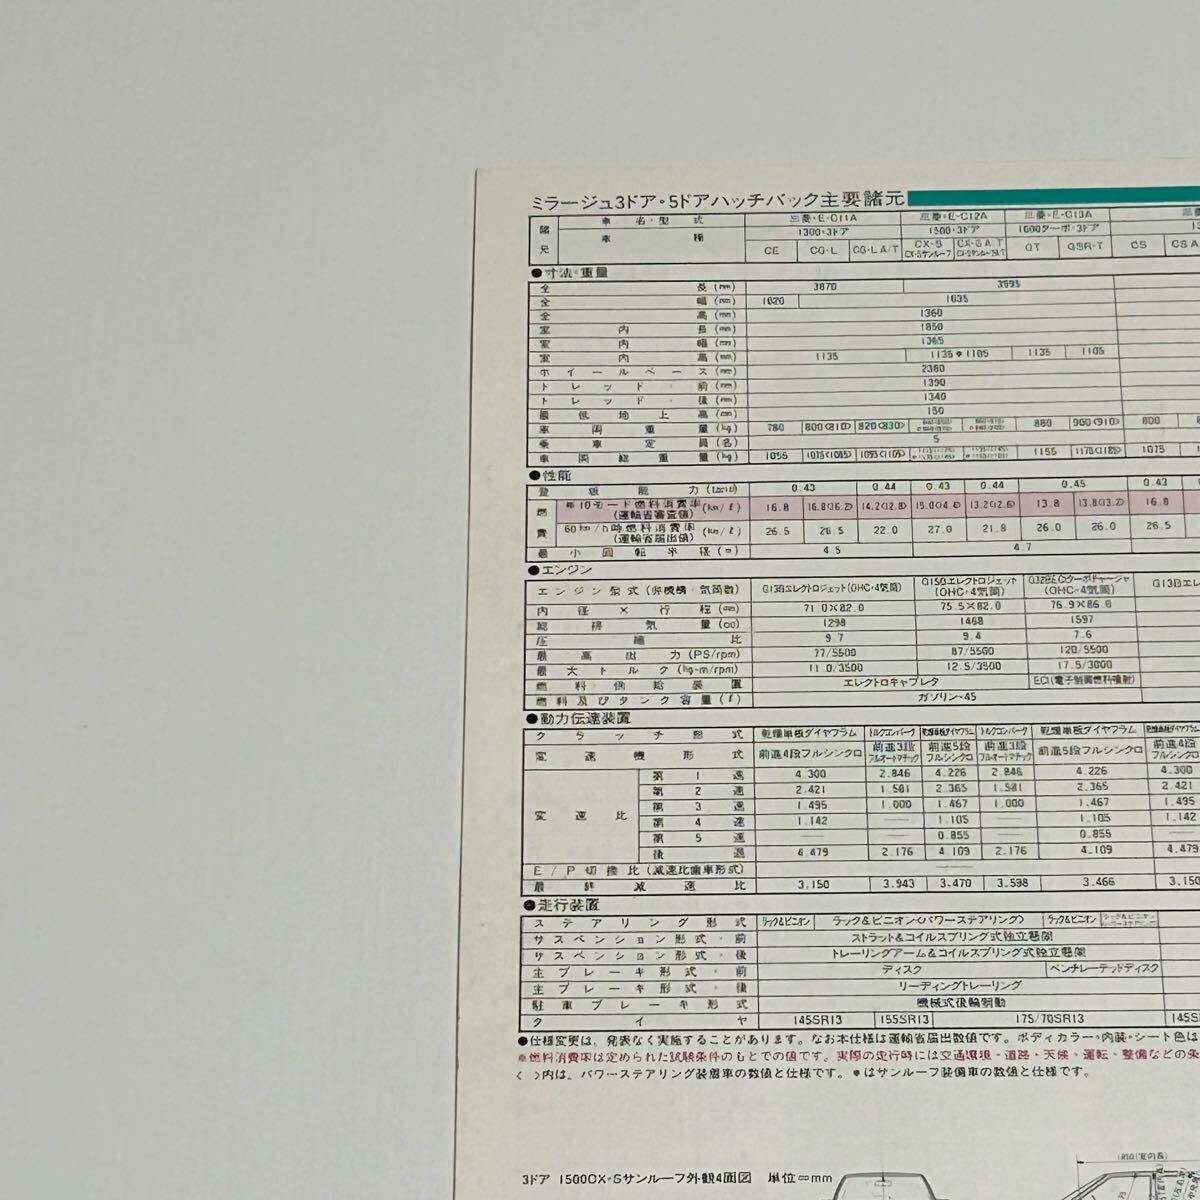 ミラージュ3ドア・5ドアハッチバック主要諸元
諸元 車名・型式 三菱・E-C11A 三菱・E-C12A 三菱・E-C13A
車種 1300・3ドア 1500・3ドア 1600ターボ・3ドア
CE CG・L CG・L A/T CX・S CX・S A/T GT GSR-T CS CS A
CX・Sサンルーフ CX・SサンルーフA/T
●寸法・重量
全長(mm) 3870 3895
全幅(mm) 1620 1635
全高(mm) 1360
室内長(mm) 1850
室内幅(mm) 1365
室内高(mm) 1135 1135 ＊1105 1135 1105
ホイールベース(mm) 2380
トレッド・前(mm) 1390
トレッド・後(mm) 1340
最低地上高(mm) 150
車両重量(kg) 780 800〈810〉 820〈830〉 880 900〈910〉 800
乗車定員(名) 5
車両総重量(kg) 1055 1075〈1085〉 1095〈1105〉 1155 1175〈1185〉 1075
●性能
登坂能力(tanθ) 0.43 0.44 0.43 0.44 0.45 0.43
燃費 ＊10モード燃料消費率(運輸省審査値)(km/ℓ) 16.8 16.8〈16.2〉 14.2〈12.8〉 15.0〈14.6〉 13.2〈12.6〉 13.8 13.8〈13.2〉 16.8
60km/h時燃料消費率(運輸省届出値)(km/ℓ) 26.5 26.5 22.0 27.0 21.8 26.0 26.0 26.5
最小回転半径(m) 4.5 4.7
●エンジン
エンジン型式(弁機構・気筒数) G13Bエレクトロジェット(OHC・4気筒) G15Bエレクトロジェット(OHC・4気筒) G32BECIターボチャージャ(OHC・4気筒) G13Bエレ
内径×行程(mm) 71.0×82.0 75.5×82.0 76.9×86.0
総排気量(cc) 1298 1468 1597
圧縮比 9.7 9.4 7.6
最高出力(PS/rpm) 77/5500 87/5500 120/5500
最大トルク(kg-m/rpm) 11.0/3500 12.5/3500 17.5/3000
燃料供給装置 エレクトロキャブレタ ECI(電子制御燃料噴射)
燃料及びタンク容量(ℓ) ガソリン・45
●動力伝達装置
クラッチ形式 乾燥単板ダイヤフラム トルクコンバータ 乾燥単板ダイヤフラム トルクコンバータ 乾燥単板ダイヤフラム 乾燥単板ダイヤフラム
変速機形式 前進4段フルシンクロ 前進3段フルオートマチック 前進5段フルシンクロ 前進3段フルオートマチック 前進5段フルシンクロ 前進4段フルシンクロ
変速比 第1速 4.300 2.846 4.226 2.846 4.226 4.300
第2速 2.421 1.581 2.365 1.581 2.365 2.421
第3速 1.495 1.000 1.467 1.000 1.467 1.495
第4速 1.142 — 1.105 — 1.105 1.142
第5速 — — 0.855 — 0.855 —
後退 4.479 2.176 4.109 2.176 4.109 4.479
E/P切換比(減速比歯車形式) —
最終減速比 3.150 3.943 3.470 3.598 3.466 3.150
●走行装置
ステアリング形式 ラック&ピニオン ラック&ピニオン〈パワーステアリング〉 ラック&ピニオン ラック&ピニオン〈パワーステアリング〉
サスペンション形式・前 ストラット&コイルスプリング式独立懸架
サスペンション形式・後 トレーリングアーム&コイルスプリング式独立懸架
主ブレーキ形式・前 ディスク ベンチレーテッドディスク
主ブレーキ形式・後 リーディングトレーリング
駐車ブレーキ形式 機械式後輪制動
タイヤ 145SR13 155SR13 175/70SR13 145S
●仕様変更は、発表なく実施することがあります。なお本仕様は運輸省届出数値です。ボディカラー・内装・シート色は
＊燃料消費率は定められた試験条件のもとでの値です。実際の走行時には交通環境・道路・天候・運転・整備などの条
〈 〉内は、パワーステアリング装着車の数値と仕様です。＊はサンルーフ装備車の数値と仕様です。
3ドア 1500CX・Sサンルーフ外観4面図 単位=mm
1850(室内長)